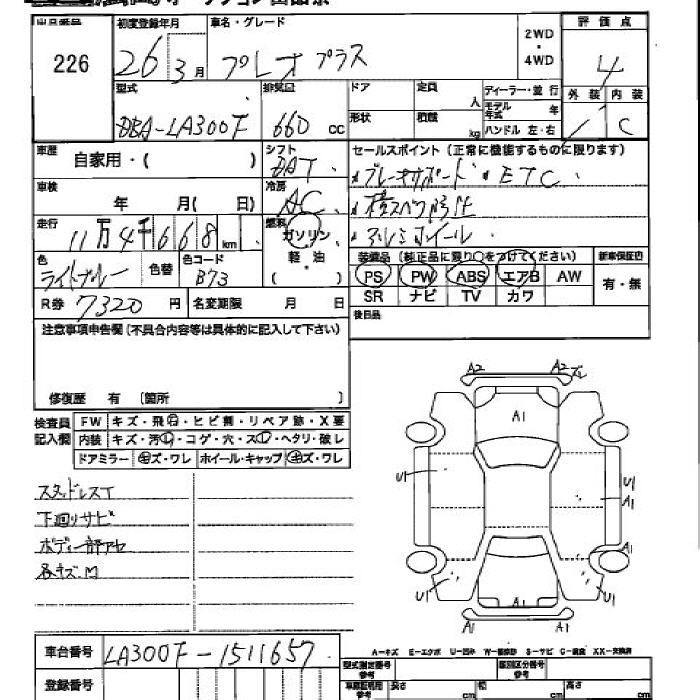 出品番号 226
初度登録年月 26 3月
車名・グレード プレオプラス
2WD・4WD
評価点 4
外装 内装 C
型式 DBA-LA300F
排気量 660 cc
ドア 定員 人
形状 積載 kg
ディーラー・並行
モデル年式 年
ハンドル 左・右
車歴 自家用・( )
シフト
セールスポイント(正常に機能するものに限ります)
ブレーキサポート ETC
横スベリ防止
アルミホイール
車検 年 月( 日)
冷房 AC
走行 11万4千668km
燃料 ガソリン・軽・油・( )
色 ライトブルー 色替
色コード B73
装備品(純正品に限り○をつけてください) 新車保証書
PS PW ABS エアB AW 有・無
SR ナビ TV カワ
R券 7320円 名変期限 月 日
後日品
注意事項申告欄(不具合内容等は具体的に記入して下さい)
修復歴 有 〔箇所 〕
検査員記入欄
FW キズ・飛石・ヒビ割・リペア跡・X要
内装 キズ・汚レ・コゲ・穴・スレ・ヘタリ・破レ
ドアミラー キズ・ワレ ホイール・キャップ キズ・ワレ
スタッドレスT
下廻りサビ
ボディー一部アセ
各キズ.M
A2 A2
A1
U1 U1
A1
A1
U1 U1
A1
A2
A-キズ E-エクボ U-凹み W-補修跡 S-サビ C-腐食 XX-交換済
車台番号 LA300F-1511657
登録番号
型式指定番号 参考
類別区分番号 参考
長さ cm 幅 cm 高さ cm